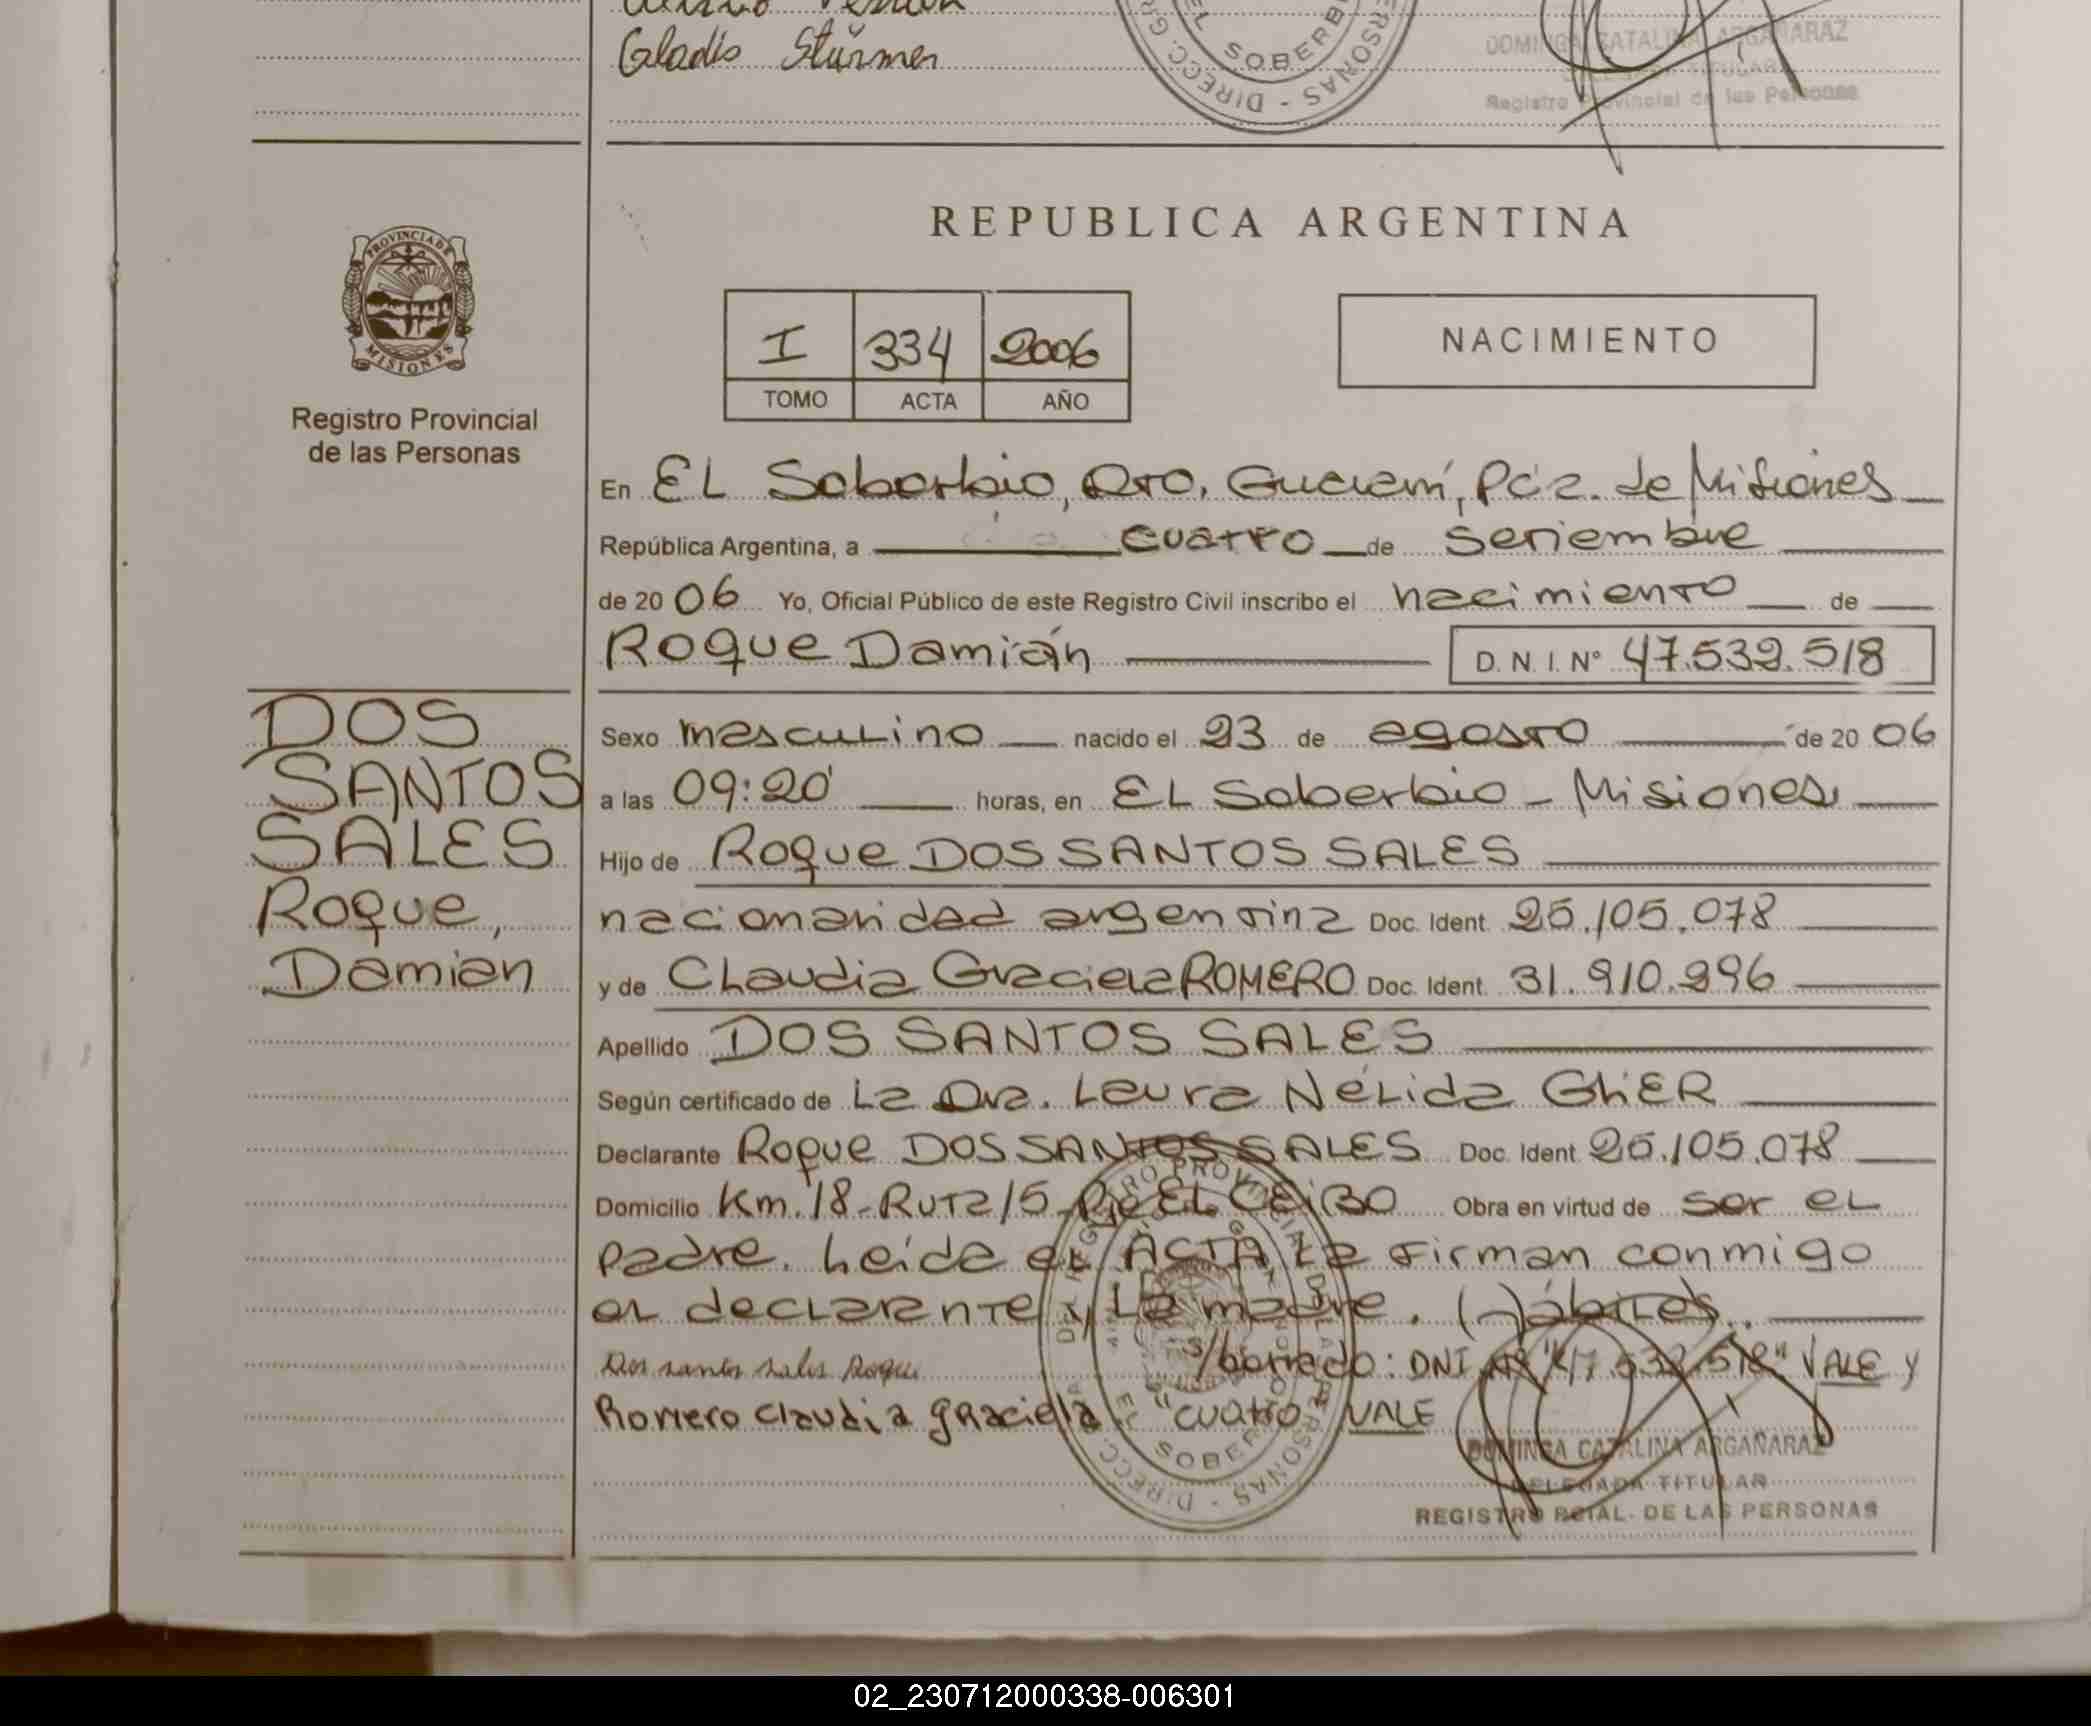 Gladis Stürmer
EL SOBERBIO
DIRECC. GR
DOMINGA CATALINA ARGAÑARAZ
DELEGADA TITULAR
Registro Provincial de las Personas
PROVINCIA DE
MISIONES
Registro Provincial
de las Personas
REPUBLICA ARGENTINA
I 334 2006
TOMO ACTA AÑO
NACIMIENTO
En EL Soberbio, Dto, Guaraní, Pcia. de Misiones
República Argentina, a cuatro de setiembre
de 2006 Yo, Oficial Público de este Registro Civil inscribo el nacimiento de
Roque Damián D.N.I. Nº 47.532.518
DOS
SANTOS
SALES
Roque,
Damian
Sexo masculino nacido el 23 de agosto de 2006
a las 09:20 horas, en EL Soberbio - Misiones
Hijo de Roque DOS SANTOS SALES
nacionalidad argentina Doc. Ident. 25.105.078
y de Claudia Graciela ROMERO Doc. Ident. 31.910.296
Apellido DOS SANTOS SALES
Según certificado de La Dra. Laura Nélida GhiER
Declarante Roque DOS SANTOS SALES Doc. Ident 25.105.078
Domicilio Km. 18-Ruta 15-Pje EL CEiBO Obra en virtud de ser el
padre. Leída el ACTA la firman conmigo
el declarante y La madre. (-) ábiles.
Dos santos sales Roque s/borrado: DNI Nº "47.532.518" VALE y
Romero claudia graciela "cuatro" VALE
EL SOBERBIO
DOMINGA CATALINA ARGAÑARAZ
DELEGADA TITULAR
REGISTRO PCIAL. DE LAS PERSONAS
02_230712000338-006301